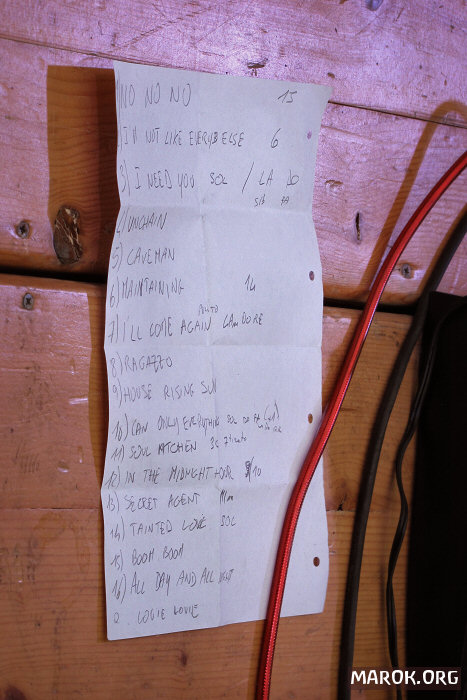 1) NO NO NO 15
2) I'M NOT LIKE EVERYB ELSE 6
3) I NEED YOU SOL / LA DO
SIB FA
4) UNCHAIN
5) CAVEMAN
6) MAINTAINING 14
7) I'LL COME AGAIN LAm DO RE
8) RAGAZZO
9) HOUSE RISING SUN
10) CAN ONLY EVERYTHING SOL DO FA
11) SOUL KITCHEN
12) IN THE MIDNIGHT HOUR /10
13) SECRET AGENT
14) TAINTED LOVE SOL
15) BOOM BOOM
16) ALL DAY AND ALL NIGHT
LOUIE LOUIE
MAROK.ORG